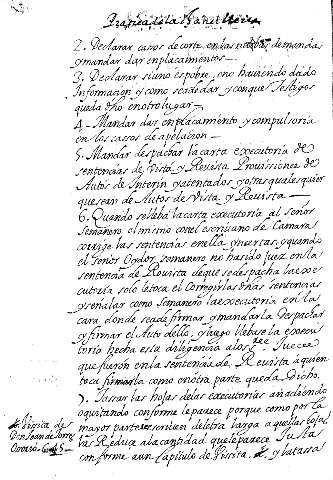 Practica de la
2. Declarar casos de corte, en las nuebas demandas
y mandar dar enplacamentos
3. Declarar si uno es pobre, no haviendo dado
Informacion y como se ad dar, y con que Testigos
queda dho en otro lugar
4. Mandar dar enplacamiento y compulsoria
en los casos de apelacion
5. Mandar despachar la carta executoria de
sentencias de Vista, y Revista Provissiones de
Autos de Interin y atentados, y otras quales quier
que sean de Autos de Vista, y Revista
6. Quando se lleba la carta executoria al señor
Semanero el mismo con el escrivano de Camara
corrixe las sentencias en ella ynsertas, y quando
el señor Oydor semanero no ha sido Juez en la
sentencia de Revista de que se despacha la exe
cutoria solo le toca el Corregir las dhas sentencias
y señalar como Semanero la executoria en la
cara, donde se ad firmar, y mandarla Despachar
y firmar el Auto dello, y luego
torio hecha esta diligencia a los Jueces
que fueron en la sentencia de Revista a quien
toca firmarla como en otra parte queda Dicho.
7. Tassar las hojas de las executorias añadiendo
o quitando conforme le parece porque como por la
mayor parte escriven de letra larga a quellas hojas,
las Reduce a la cantidad que le parece Justa
conforme a un Capitulo de Vissita. y la tassa
la Vissita de
Don Juan de